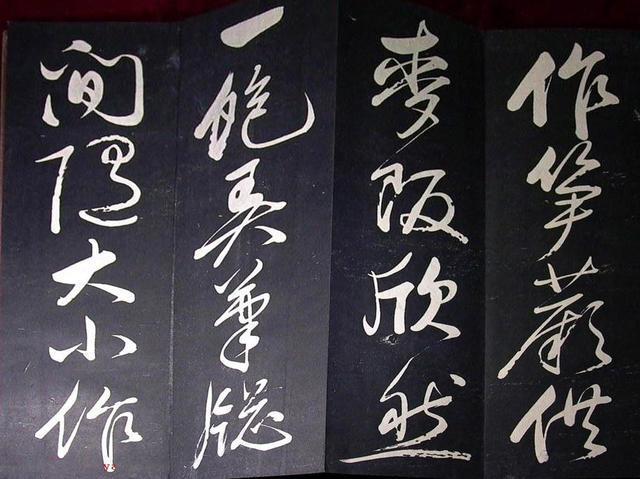 作筍蕨供
麥飯欣然
一飽弄筆牕
間隨大小作